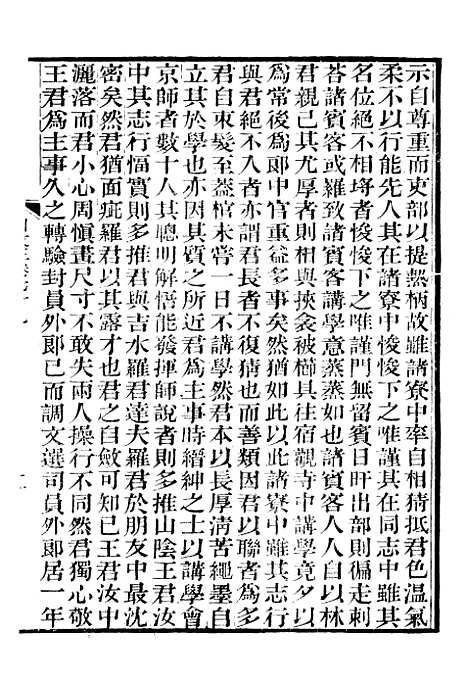 示自尊重而吏部以提熱柄故雖諸寮中率自相猜抵君色溫氣
柔不以行能先人其在諸寮中悛悛下之唯謹其在同志中雖其
名位絕不相埒者悛悛下之唯謹門無留賓日旰出部則徧走刺
荅諸賓客或羅致諸賓客講學意蒸蒸如也諸賓客人人自以林
君親已其尤厚者則相與挾衾被櫛具往宿觀寺中講學竟夕以
爲常後爲郎中官益多事矣然猶如此以此諸寮中雖其志行
與君絕不入者亦謂君長者不復猜也而善類因君以聯者爲多
君自束髮至蓋棺未嘗一日不講學然君本以長厚清苦繩墨自
立其於學也亦因其質之所近君爲主事時縉紳之士以講學會
京師者數十人其聰明解悟能發揮師說者則多推山陰王君汝
中其志行愊實則多推君與吉水羅君達夫羅君於朋友中最沈
密矣然君猶面疵羅君以其露才也君之自斂可知已王君汝中
灑落而君小心周愼畫尺寸不敢失兩人操行不同然君獨心敬
王君爲主事久之轉驗封員外郎已而調文選司員外郎居一年